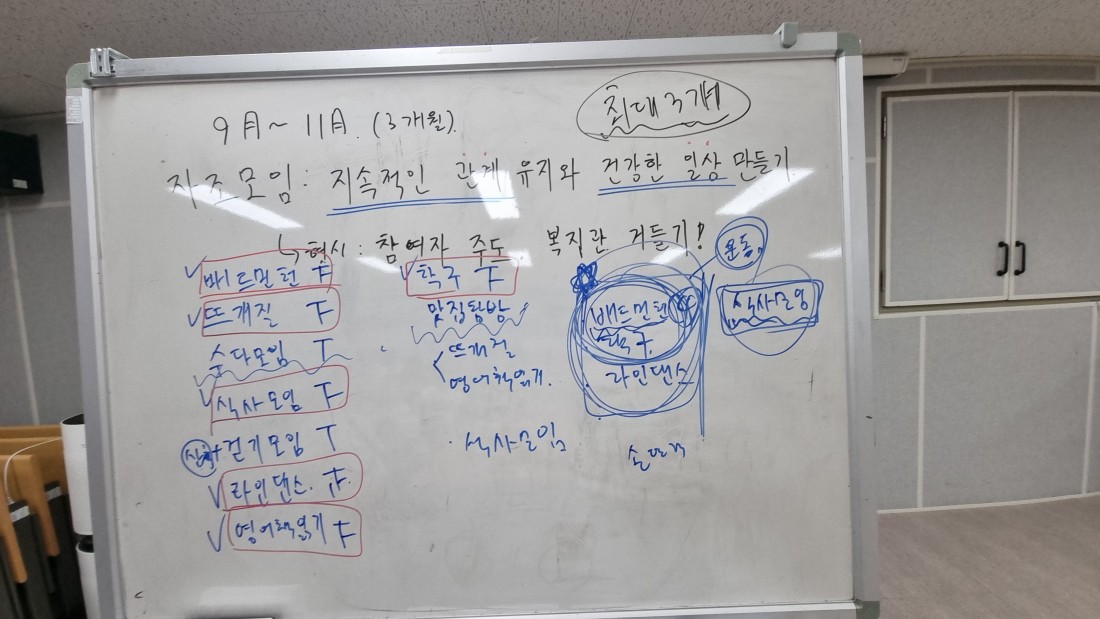 9月~11月. (3개월).
최대 3개
자조모임: 지속적인 관계 유지와 건강한 일상 만들기.
형식: 참여자 주도, 복지관 거들기!
배드민턴
뜨개질
수다모임
식사모임
걷기모임
라인댄스.
영어책읽기
탁구
맛집탐방
뜨개질
영어책읽기.
식사모임
운동
배드민턴
탁구
라인댄스
식사모임